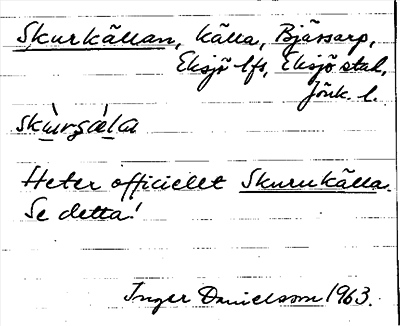 Skurkällan, källa, Bjässarp,
Eksjö lfs, Eksjö stad,
Jönk. l.
skùrgǝ́la
Heter officiellt Skurukälla.
Se detta!
Inger Danielsson 1963.